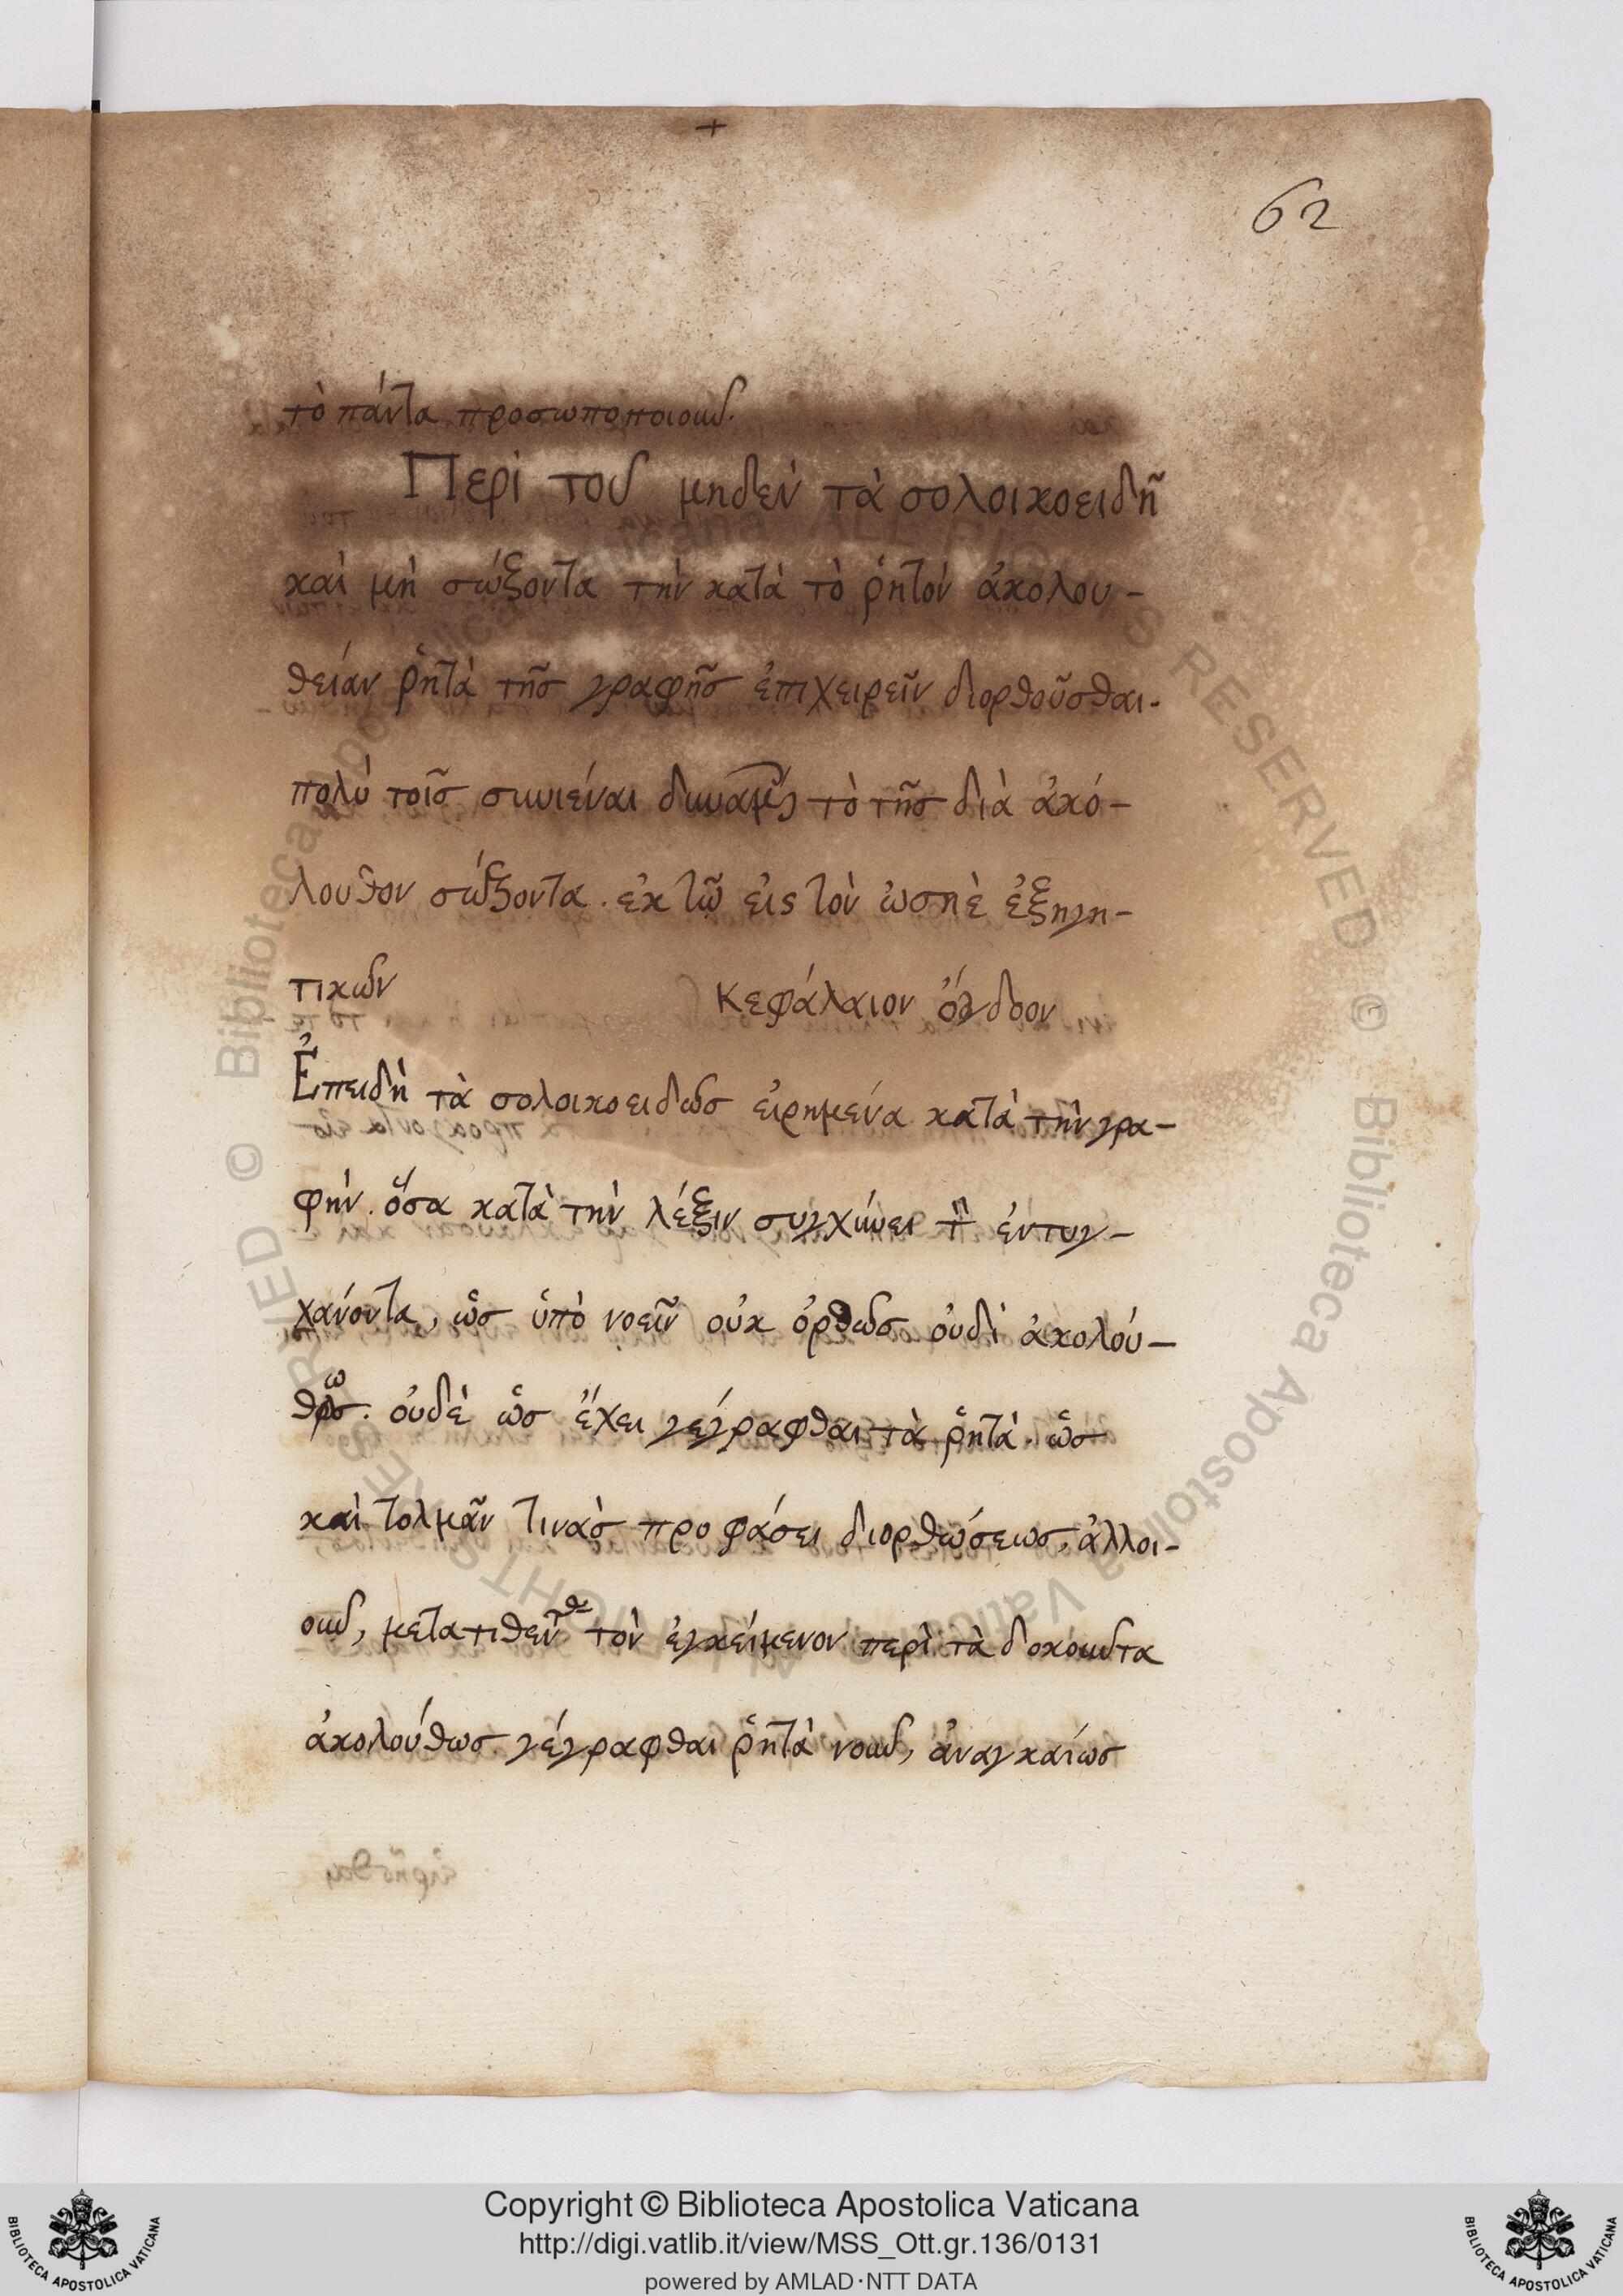 +
62
τὸ πάντα προσωποποιοῦν.
Περὶ τοῦ μηδὲν τὰ σολοικοειδῆ
καὶ μὴ σώζοντα τὴν κατὰ τὸ ῥητὸν ἀκολου-
θείαν ῥητὰ τῆς γραφῆς ἐπιχειρεῖν διορθοῦσθαι.
πολὺ τοῖς συνιέναι τὸ τῆς διὰ ἀκό-
λουθον σώζοντα. ἐκ τῶν εἰς τὸν ὠσηὲ ἐξηγη-
τικῶν Κεφάλαιον ὄγδοον
Ἐπειδὴ τὰ σολοικοειδῶς εἰρημένα κατὰ τὴν γρα-
φὴν. ὅσα κατὰ τὴν λέξιν συγχύνει τὸν ἐντυγ-
χάνοντα, ὡς ὑπὸ νοεῖν οὐκ ὀρθῶς οὐδὲ ἀκολού-
θως. οὐδὲ ὡς ἔχει γεγράφθαι τὰ ῥητὰ. ὡς
καὶ τολμᾶν τινὰς προφάσει διορθώσεως, ἀλλοι-
οῦν, μετατιθέντας τὸν ἐγκείμενον περὶ τὰ δοκοῦντα
ἀκολούθως γέγραφθαι ῥητὰ νοῦν, ἀναγκαίως
Copyright © Biblioteca Apostolica Vaticana
http://digi.vatlib.it/view/MSS_Ott.gr.136/0131
powered by AMLAD·NTT DATA
BIBLIOTECA APOSTOLICA VATICANA
BIBLIOTECA APOSTOLICA VATICANA